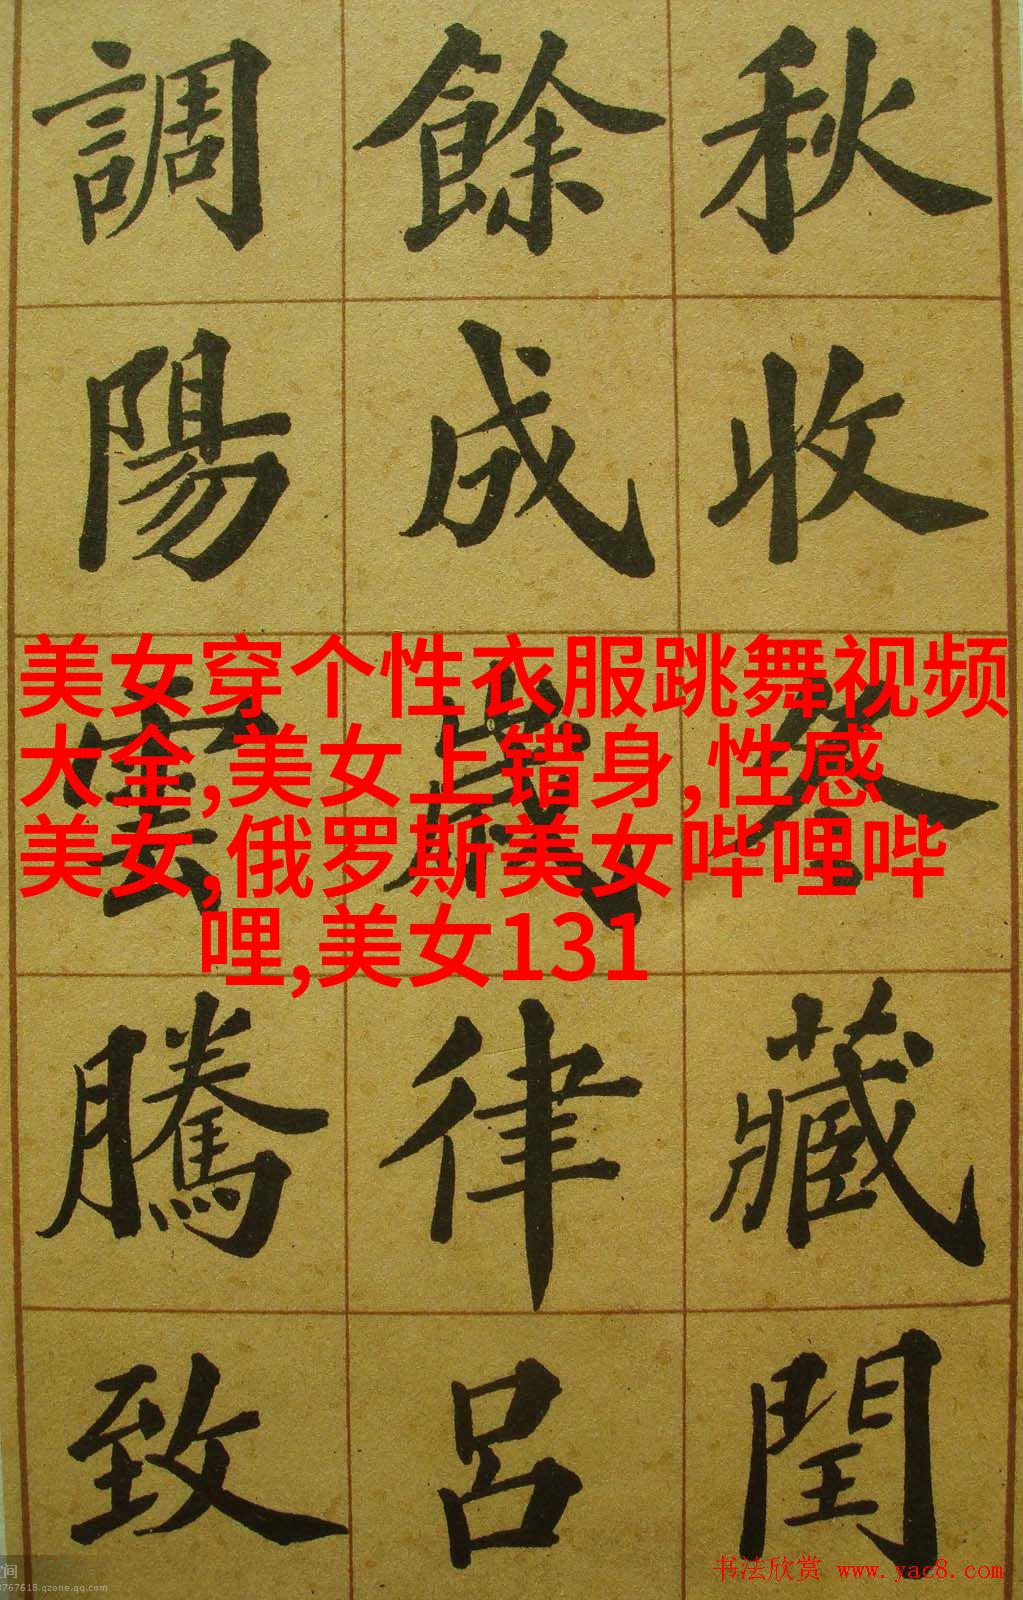 秋收冬藏閏
餘成歲律呂
調陽雲騰致
美女穿个性衣服跳舞视频
大全,美女上错身,性感
美女,俄罗斯美女哔哩哔
哩,美女131
书法欣赏 www.yac8.com
空间
8767618.qzone.qq.com